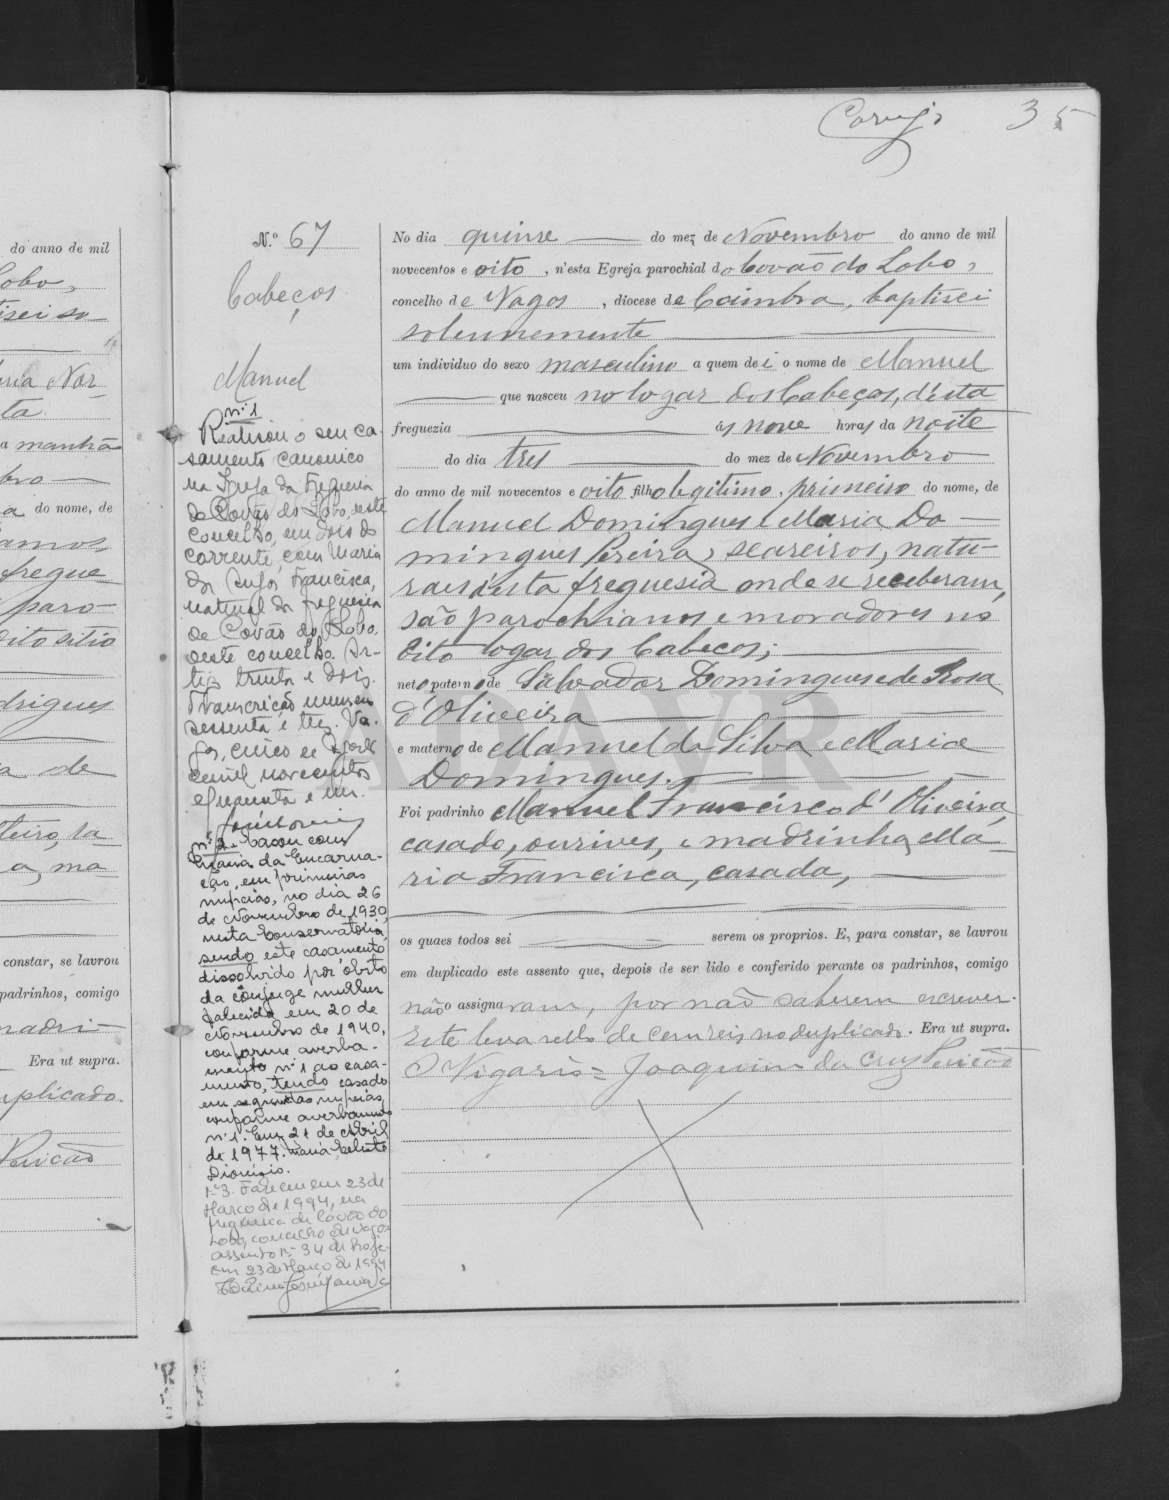 35
N.º 67
Cabeços
Manuel
No dia quinse do mez de Novembro do anno de mil
novecentos e oito, n'esta Egreja parochial do Covão do Lobo,
concelho de Vagos, diocese de Coimbra, baptisei
solemnemente
um individuo do sexo masculino a quem dei o nome de Manuel
que nasceu no logar dos Cabeços, d'esta
freguezia ás nove horas da noite
do dia tres do mez de Novembro
do anno de mil novecentos e oito filho legitimo, primeiro do nome, de
Manuel Domingues e Maria Do-
mingues Pereira, seareiros, natu-
raes d'esta freguesia onde se receberam,
são parochianos e moradores no
dito logar dos Cabecos;
neto paterno de Salvador Domingues e de Rosa
d'Oliveira
e materno de Manuel da Silva e Maria
Domingues.
Foi padrinho Manuel Francisco d'Oliveira,
casado, ourives, e madrinha Ma-
ria Francisca, casada,
os quaes todos sei serem os proprios. E, para constar, se lavrou
em duplicado este assento que, depois de ser lido e conferido perante os padrinhos, comigo
não assignaram, por não saberem escrever.
Este leva sello de cem reis no duplicado. Era ut supra.
O Vigario = Joaquim da Cruz Pericão
nº 1
Realisou o seu ca-
samento canonico
na Igreja da Freguesia
do Covão do Lobo, deste
concelho, em dois do
corrente, com Maria
Francisca,
natural da freguesia
de Covão do Lobo,
deste concelho. Ar-
tigo trinta e dois.
Transcrição numero
sessenta e tres. Va-
gos, cinco de
de mil novecentos
e quarenta e um.
nº 2. Casou com
Maria da Encarna-
ção, em primeiras
nupcias, no dia 26
de Novembro de 1930,
nesta Conservatória,
sendo este casamento
dissolvido por óbito
da cônjuge mulher
falecida em 20 de
Novembro de 1940,
conforme averba-
mento nº 1 ao casa-
mento, tendo casado
em segundas nupcias,
conforme averbamento
nº 1. Em 21 de Abril
de 1977. Maria Celeste
Dionisio.
Nº 3. Faleceu em 23 de
Março de 1994, na
freguesia de Covão do
Lobo, concelho de Vagos
assento nº 34 de hoje.
Em 23 de Março de 1994
do anno de mil
Lobo,
a manhã
do nome, de
paro-
dito sitio
drigues
a de
constar, se lavrou
padrinhos, comigo
Era ut supra.
Pericão
ADAVR